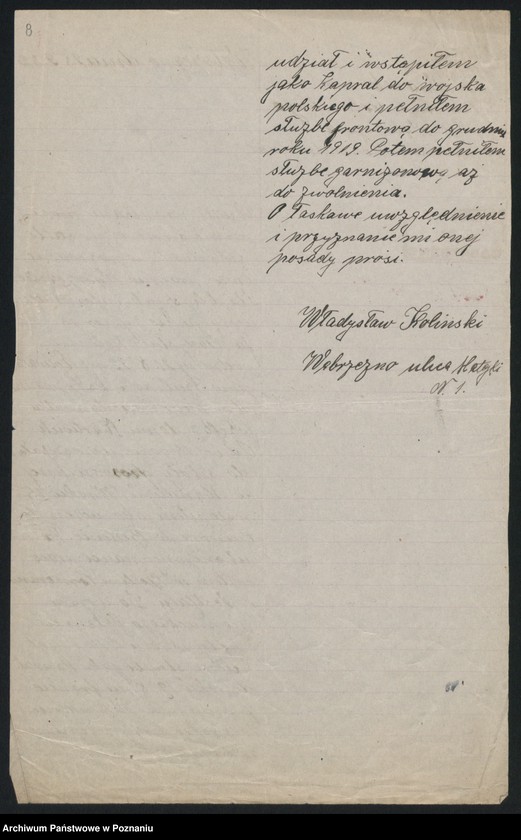 8
udział i wstąpiłem
jako kapral do wojska
polskiego i pełniłem
służbe frontową do grudnia
roku 1919. Potem pełniłem
służbe garnizonową aż
do zwolnienia.
O łaskawe uwzględnienie
i przyznanie mi onej
posady prosi.
Władysław Kolinski
Wąbrzezno ulica Matejki
N. 1.
Archiwum Państwowe w Poznaniu